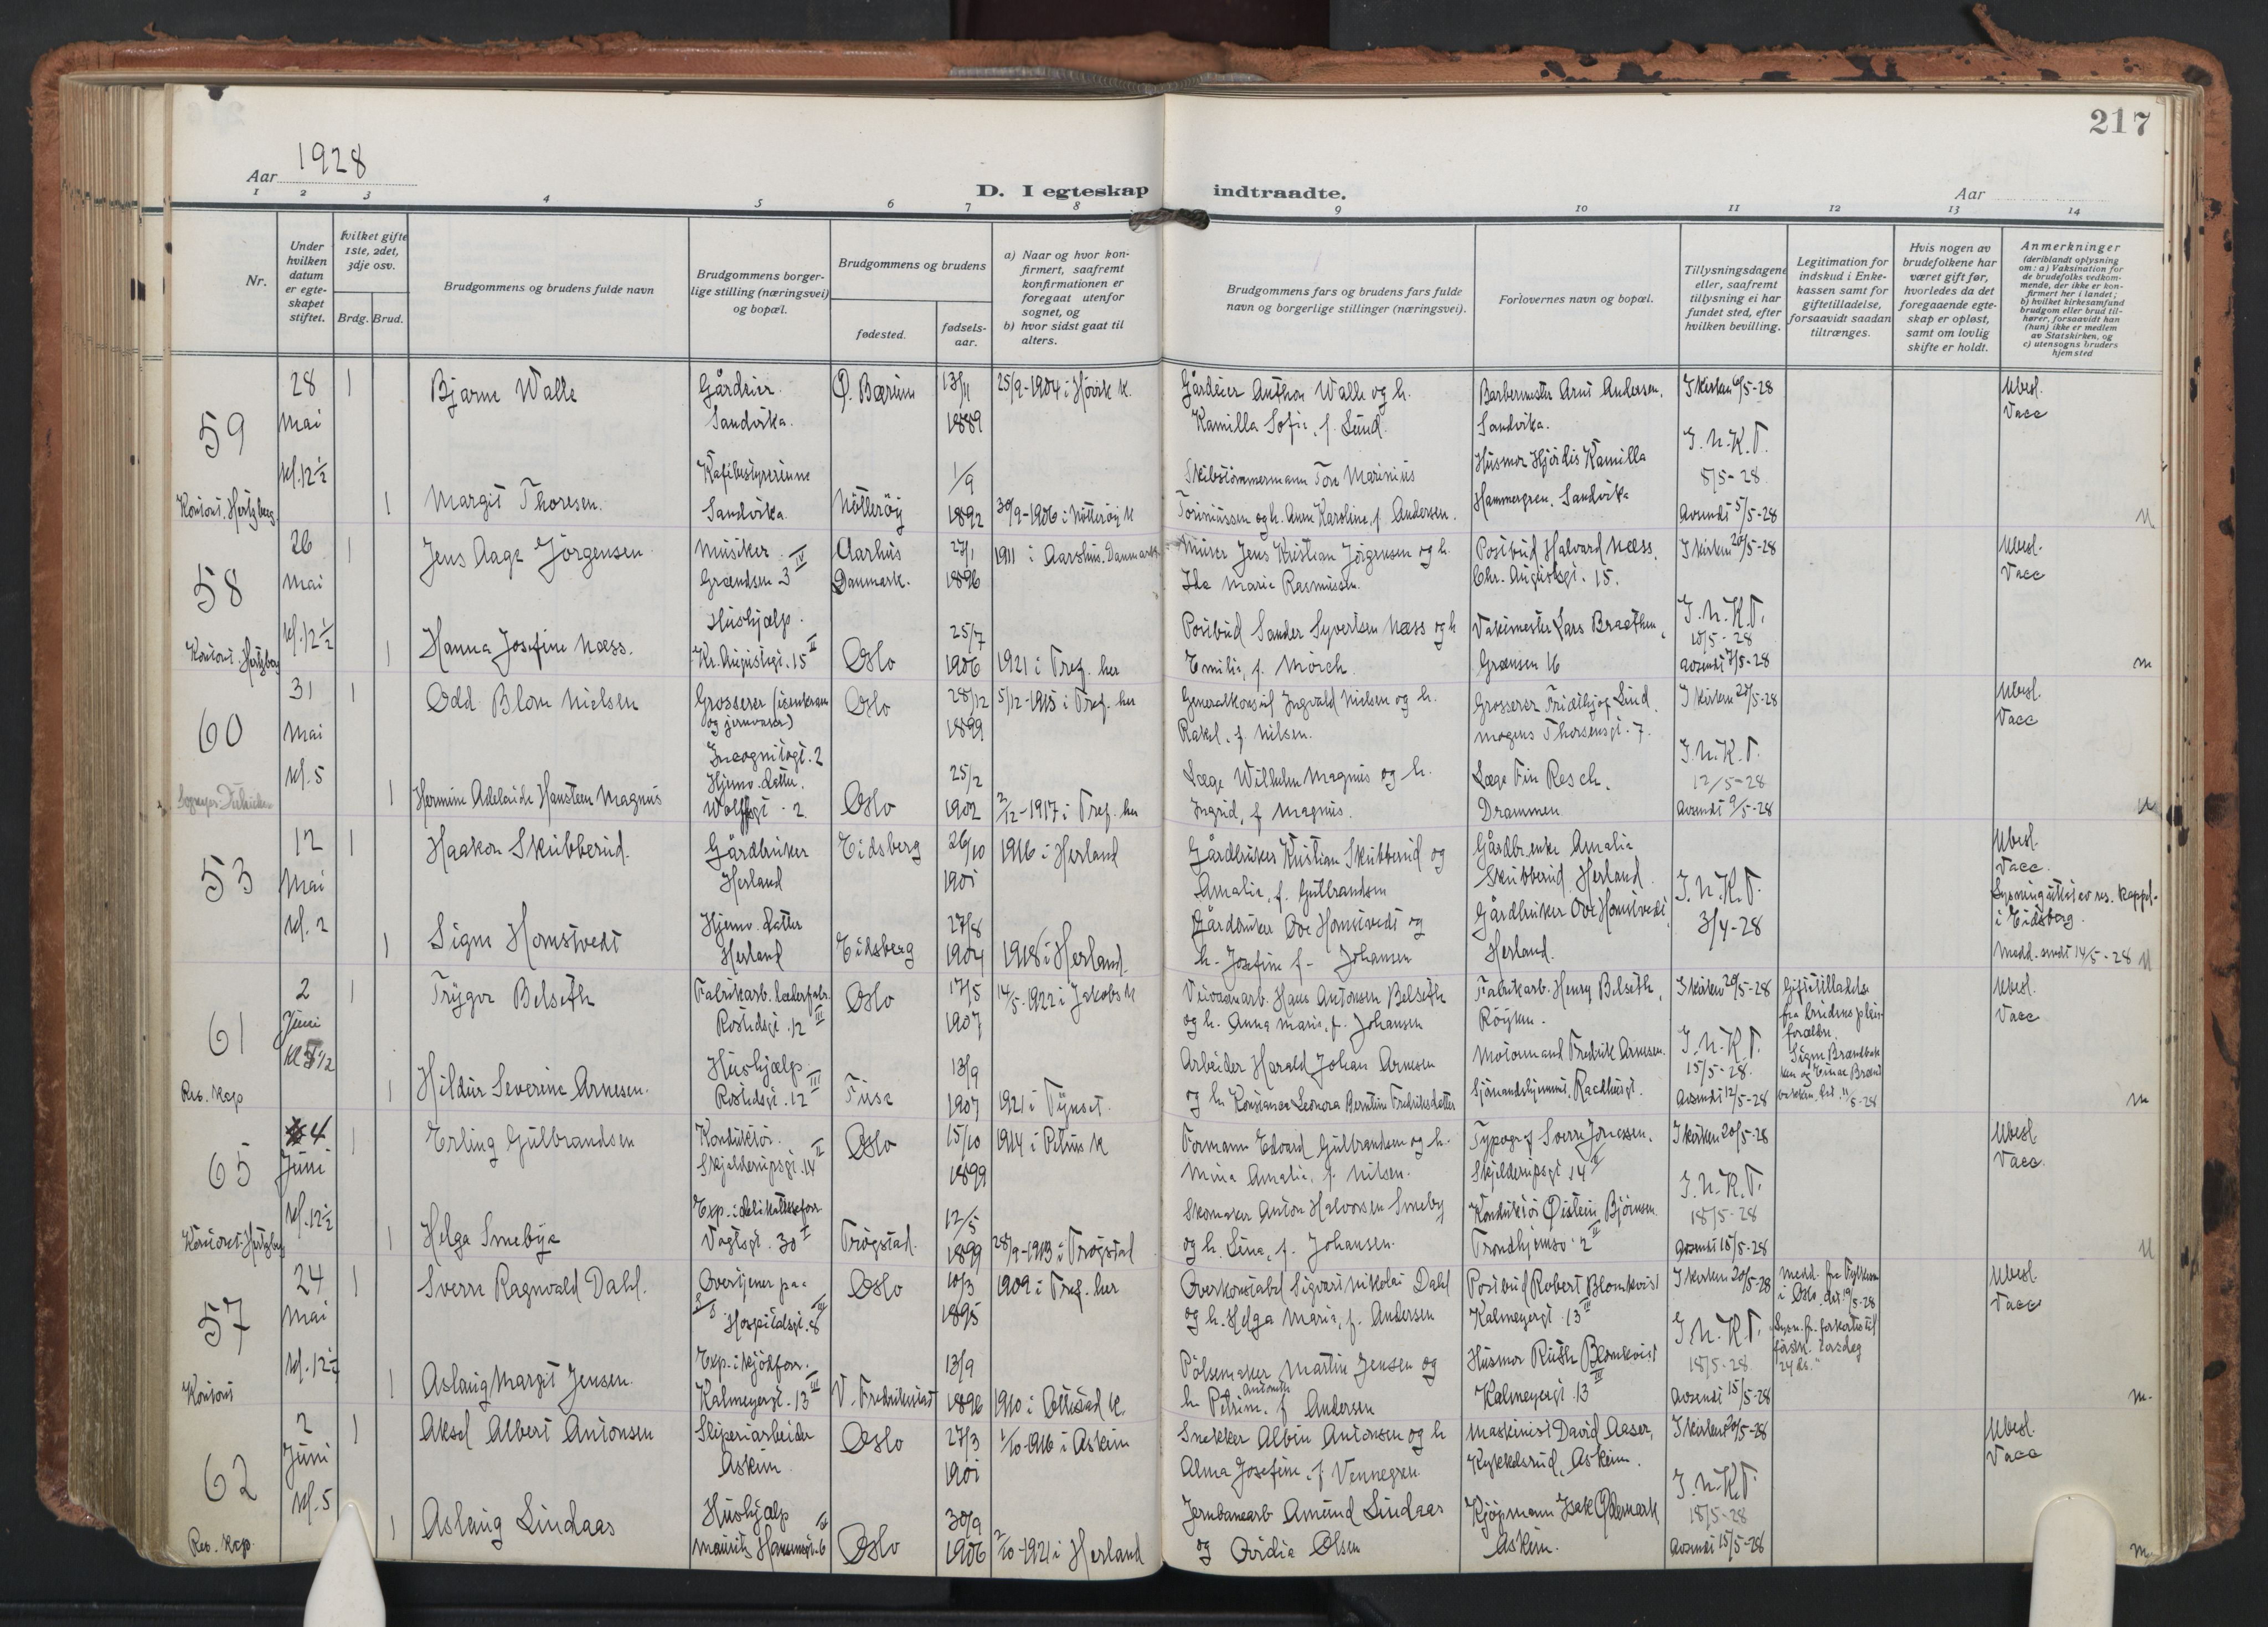 217
Aar 1928
D. I egteskap indtraadte.
Aar
1 2 3 4 5 6 7 8 9 10 11 12 13 14
Nr.
Under hvilken datum er egteskapet stiftet.
hvilket gifte 1ste, 2det, 3dje osv.
Brdg. Brud.
Brudgommens og brudens fulde navn
Brudgommens borgerlige stilling (næringsvei) og bopæl.
Brudgommens og brudens
fødested.
fødsels-aar.
a) Naar og hvor konfirmert, saafremt konfirmationen er foregaat utenfor sognet, og
b) hvor sidst gaat til alters.
Brudgommens fars og brudens fars fulde navn og borgerlige stillinger (næringsvei).
Forlovernes navn og bopæl.
Tillysningsdagene eller, saafremt tillysning ei har fundet sted, efter hvilken bevilling.
Legitimation for indskud i Enkekassen samt for giftetilladelse, forsaavidt saadan tiltrænges.
Hvis nogen av brudefolkene har været gift før, hvorledes da det foregaaende egteskap er opløst, samt om lovlig skifte er holdt.
Anmerkninger (deriblandt oplysning om: a) Vaksination for de brudefolks vedkommende, der ikke er konfirmert her i landet; b) hvilket kirkesamfund brudgom eller brud tilhører, forsaavidt han (hun) ikke er medlem av Statskirken, og c) utensogns bruders hjemsted
59
28 Mai kl. 12½
1 Bjarne Walle
Gårdeier. Sandvika.
Ø. Bærum
13/11 1889
25/9-1904 i Høvik K.
Gårdeier Anthon Walle og h.
Kamilla Sofie, f. Lund.
Barbermester Arne Andersen.
Sandvika.
I kirken 6/5-28
Ubesl.
Vacc
1 Margit Thoresen.
Kafébestyrerinne
Sandvika.
Nøtterøy
1/9 1892
30/9-1906 i Nøtterøy K
Skibstømmermann Tore Marinius
og h. Anne Karoline, f. Andersen.
Husmor Hjørdis Kamilla
Hammergren. Sandvika
I.N.K.T.
8/5-28
Avsendt 5/5-28
58
26 Mai kl. 12½
1 Jens Aage Jörgensen
Musiker.
Grændsen 3 IV
Aarhus
Danmark.
27/1 1896
1911 i Aarhus. Danmark
Murer Jens Kristian Jörgensen og h.
Ida Marie Rasmussen.
Postbud Halvard Næss.
Chr. Augustsgt. 15.
I kirken 20/5-28
Ubesl.
Vacc
1 Hanna Josefine Næss.
Hushjælp.
Kr. Augustsgt. 15 II
Oslo
25/7 1906
1921 i Tref. her
Postbud Sander Syvertsen Næss og h
Emilie, f. Mörch
Vaktmester Lars Braathen.
Grænsen 16
I.N.K.T.
18/5-28
Avsendt 7/5-28
60
31 Mai kl. 5
1 Odd Blom Nielsen
Grosserer (isenkram og jernvarer)
Incognitogt. 2
Oslo
28/12 1899
5/12-1915 i Tref. her
Generalkonsul Ingvald Nielsen og h.
Rakel, f. Nilsen.
Grosserer Fridthjof Lind.
Mogens Thorsensgt. 7.
I kirken 27/5-28
Ubesl.
Vacc
1 Hermine Adelaide Hansteen Magnus
Hjemv. datter.
Wolffsgt. 2.
Oslo
25/2 1902
2/12-1917 i Tref. her
Læge Wilhelm Magnus og h.
Ingrid, f Magnus.
Læge Fin Resch.
Drammen
I.N.K.T.
12/5-28
Avsendt 9/5-28
53
12 Mai kl. 2
1 Haakon Skubberud.
Gårdbruker
Herland
Eidsberg
26/10 1901
1916 i Herland
Gårdbruker Kristian Skubberud og
Amalie, f. Gulbrandsen
Gårdbr.enke Amalie
Skubberud. Herland.
I.N.K.T.
3/4-28
Ubesl.
Vacc.
Lysning utlist av res. kappel.
i Eidsberg.
Medd. sendt 14/5-28
1 Signe Homstvedt
Hjemv. datter
Herland
Eidsberg
27/8 1904
1918 i Herland.
Gårdbruker Ove Homstvedt og
h. Josefine f. Johansen
Gårdbruker Ove Homstvedt
Herland.
61
2 Juni kl 5½
Res. kap
1 Trygve Belseth
Fabrikarb. læderfabr.
Rostedsgt. 12 III
Oslo
17/5 1907
14/5-1922 i Jakobs K
Veivesenarb. Hans Antonsen Belseth
og h. Anna Marie, f. Johansen
Fabrikarb. Henry Belseth,
Röyken.
I kirken 20/5-28
Giftetilladelse
fra brudens pleie-
forældre
Ubesl.
Vacc
1 Hildur Severine Arnesen.
Hushjælp
Rostedsgt. 12 III
13/9 1907
1921 i Tynset.
Arbeider Harald Johan Arnesen
og h. Konstanse Leonora Berntine Fredriksdatter
Motormand Fredrik Arnesen.
Sjömandshjemmet. Raadhusgt.
I.N.K.T.
15/5-28.
Avsendt 12/5-28
65
4 Juni kl. 12½
1 Erling Gulbrandsen
Konduktör.
Skjelderupsgt. 14 II
Oslo
15/10 1899
1914 i Petrus K
Formann Edvard Gulbrandsen og h.
Mina Amalie, f. Nilsen.
Typograf Sverre Jonassen.
Skjelderupsgt 14 II
I kirken 20/5-28
Ubesl.
Vacc.
1 Helga Smebye
Exp. i delikatesseforr.
Vogtsgt. 30 I
Trøgstad.
12/5 1899
28/9-1913 i Trøgstad
Skomaker Anton Halvorsen Smeby
og h. Lina, f. Johansen.
Konduktör Øistein Björnsen.
Trondhjemsv. 2 II
I.N.K.T.
18/5-28
Avsendt 15/5-28
57
24 Mai kl. 12½
Kontoret
1 Sverre Ragnvald Dahl.
Overtjener paa
Hospitalsgt. 8 III
Oslo
10/3 1895
1909 i Tref. her
Overkonstabel Sigvart Nikolai Dahl
og h. Helga Marie, f. Andersen
Postbud Robert Blomkvist
Kalmeyergt. 13 III
I kirken 20/5-28
Medd. fra Fylkesm.
i Oslo, dat. 19/5-28
Ubesl.
Vacc
1 Aslaug Margit Jensen.
Exp. i kjödforr.
Kalmeyergt. 13 III
V. Fredrikstad
13/9 1896
1910 i Ottestad K.
Pölsemaker Martin Jensen og
h. Petrine Antonette f. Andersen
Husmor Ruth Blomkvist
Kalmeyergt. 13 III
I.N.K.T.
18/5-28
Avsendt 15/5-28
62
2 Juni kl. 5
Res. kap.
1 Aksel Albert Antonsen
Sliperiarbeider
Askim.
Oslo
27/3 1901
1/10-1916 i Askim
Snekker Albin Antonsen og h
Alma Josefine, f Vennegren
Maskinist David Aaser,
Kykkelsrud, Askim.
I kirken 20/5-28
Ubesl.
Vacc
1 Aslaug Lindaas
Hushjælp
Mauritz Hansensgt. 6
Oslo
30/9 1906
2/10-1921 i Herland
Jernbanearb Amund Lindaas
og Ovidia Olsen
Kjöpmann Isak Ødemark,
Askim.
I.N.K.T.
18/5-28
Avsendt 15/5-28